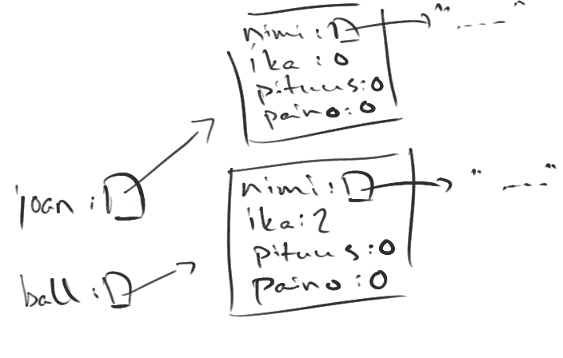 nimi: → "----"
ika: 0
pituus: 0
paino: 0
joan:
nimi: → "----"
ika: 2
pituus: 0
paino: 0
ball: